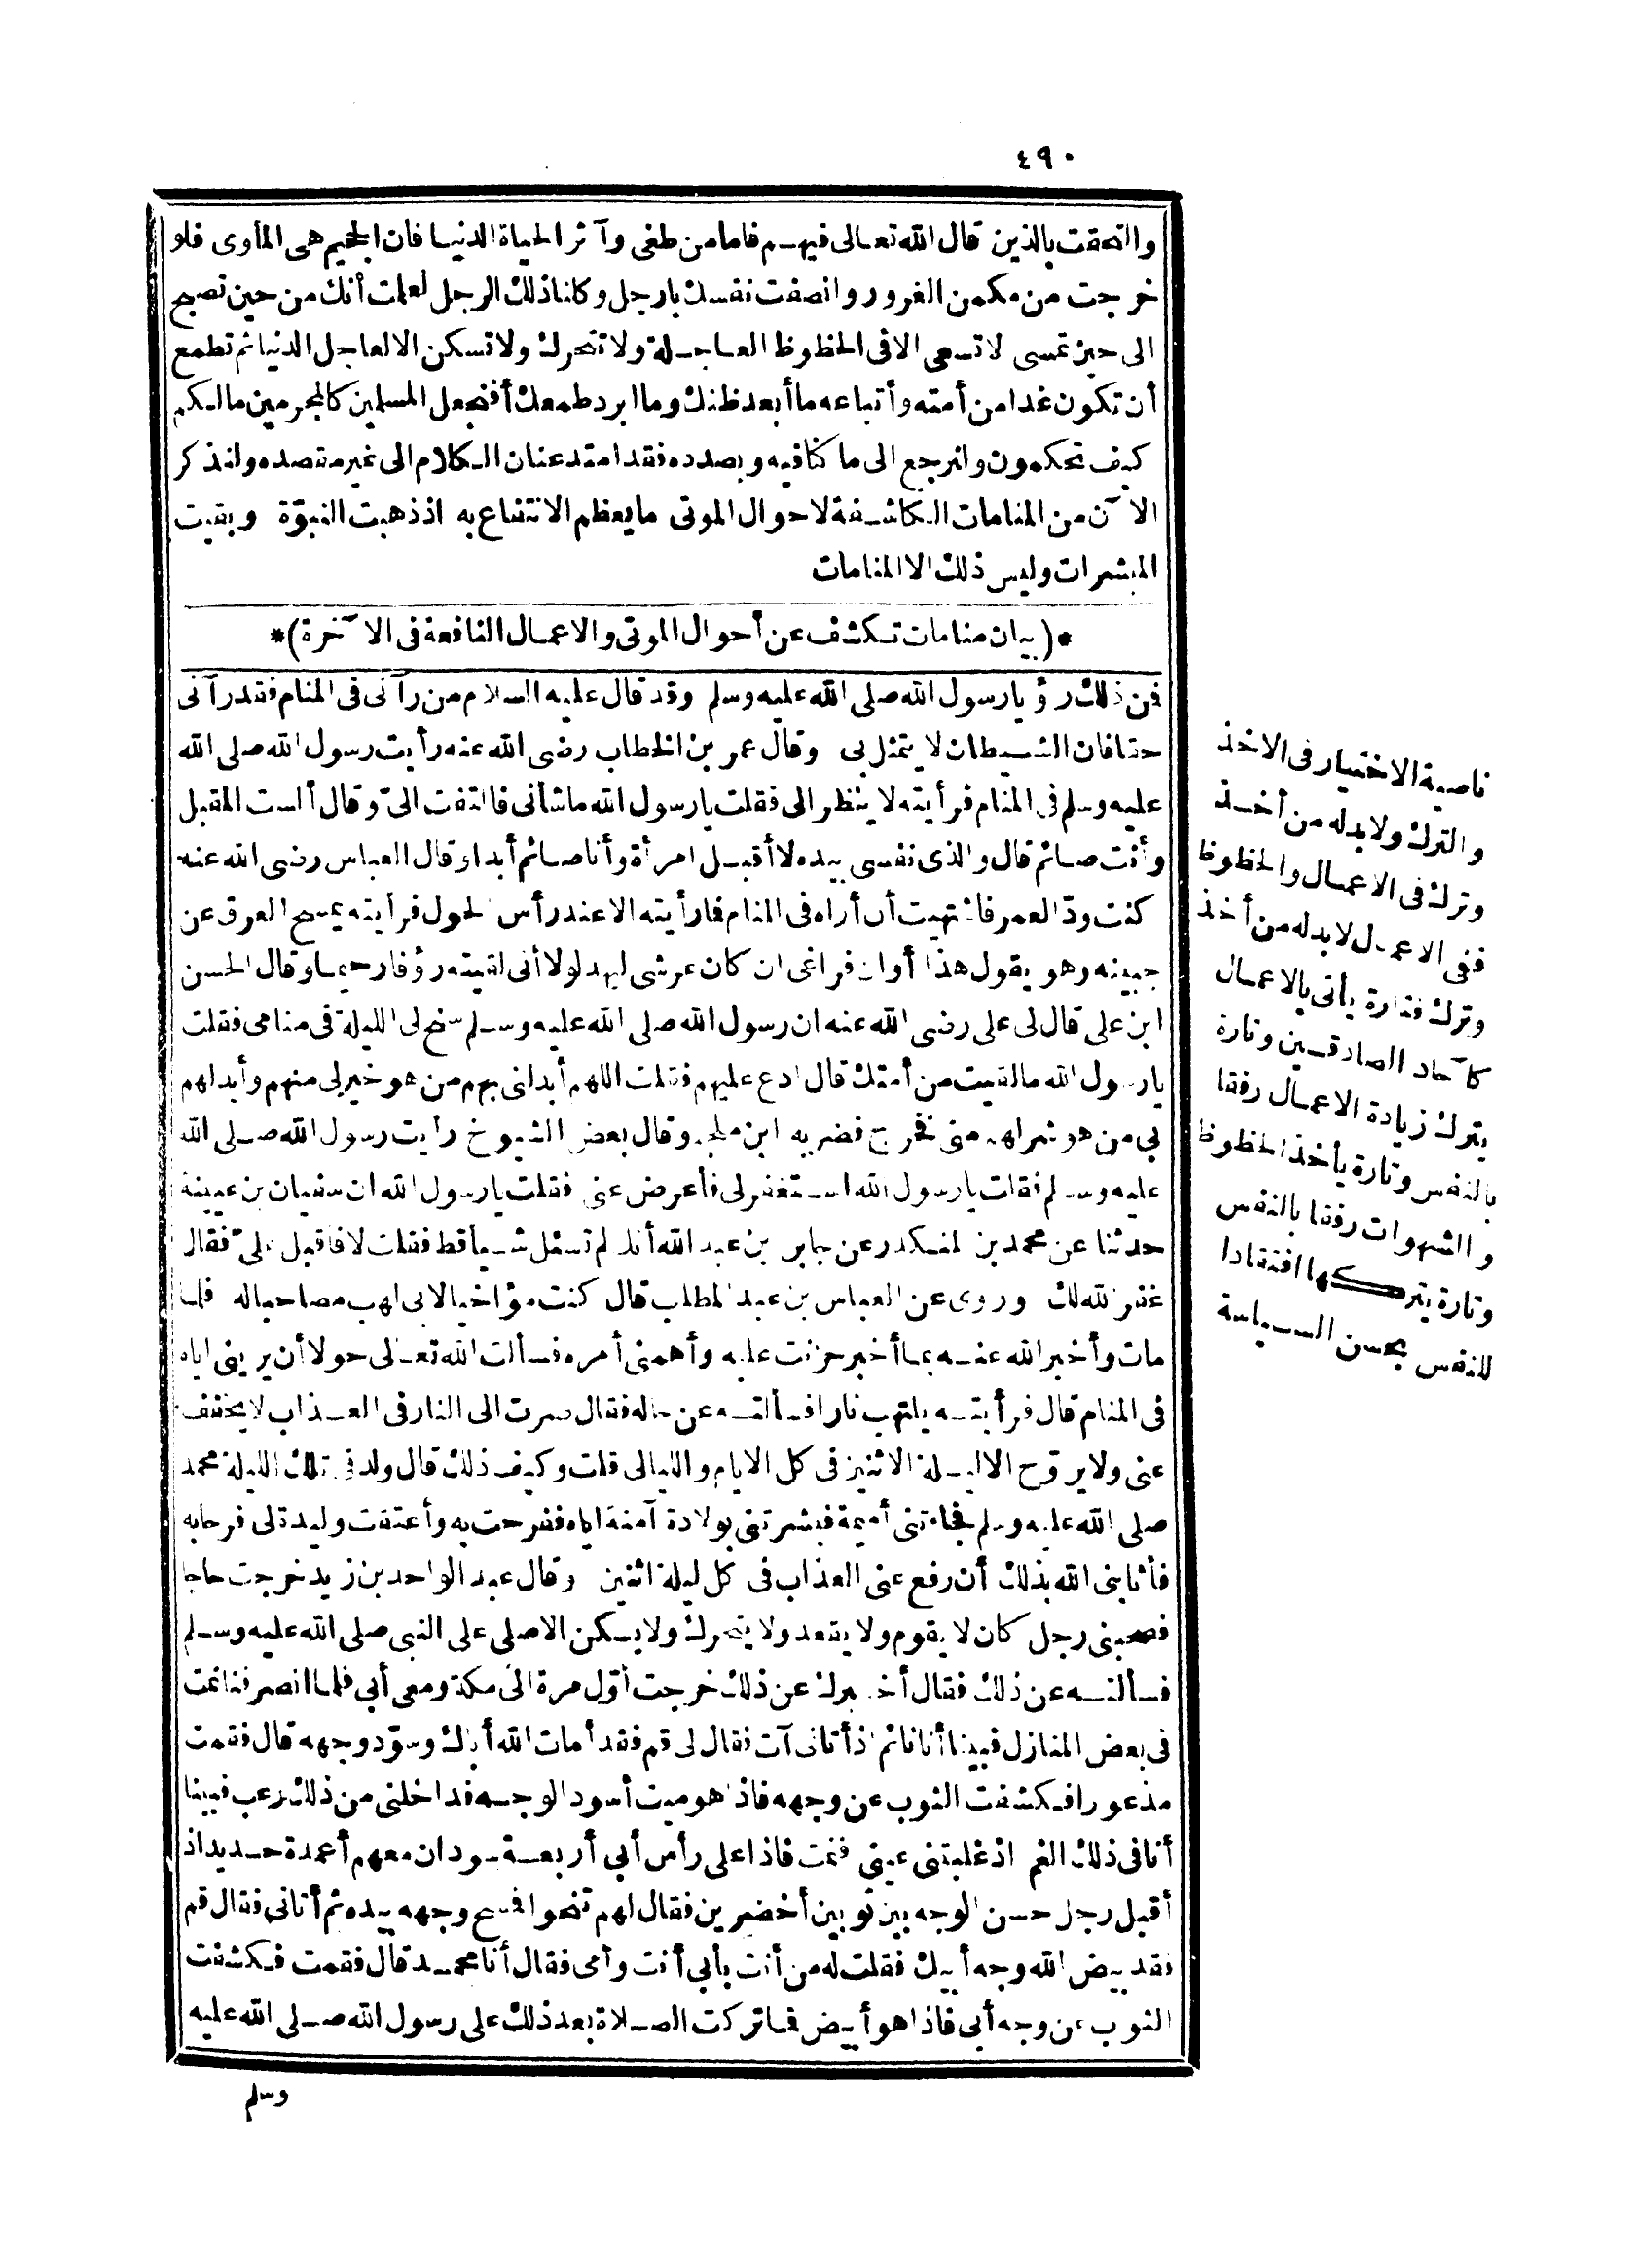 ٤٩٠
والتحقت بالذين قال الله تعالى فيهم فاما من طغى وآثر الحياة الدنيا فان الجحيم هى المأوى فلو
خرجت من مكمن الغرور وانصفت نفسك يارجل وكلنا ذلك الرجل لعلمت أنك من حين تصبح
الى حين تمسى لا تسعى الا فى الحظوظ العاجلة ولا تتحرك ولا تسكن الا لعاجل الدنيا ثم تطمع
أن تكون غدا من أمته وأتباعه ما أبعد ظنك وما ابرد طمعك أفنجعل المسلمين كالمجرمين مالكم
كيف تحكمون ولنرجع الى ما كنا فيه وبصدده فقد امتد عنان الكلام الى غير مقصده ولنذكر
الآن من المنامات الكاشفة لاحوال الموتى ما يعظم الانتفاع به اذ ذهبت النبوّة وبقيت
المبشرات وليس ذلك الا المنامات
*(بيان منامات تكشف عن أحوال الموتى والاعمال النافعة فى الآخرة)*
فمن ذلك رؤيا رسول الله صلى الله عليه وسلم وقد قال عليه السلام من رآنى فى المنام فقد رآنى
حقا فان الشيطان لا يتمثل بى وقال عمر بن الخطاب رضى الله عنه رأيت رسول الله صلى الله
عليه وسلم فى المنام فرأيته لا ينظر الى فقلت يا رسول الله ما شأنى فالتفت الىّ وقال ألست المقبل
وأنت صائم قال والذى نفسى بيده لا أقبل امرأة وأنا صائم أبدا وقال العباس رضى الله عنه
كنت ودّا لعمر فاشتهيت أن أراه فى المنام فما رأيته الا عند رأس الحول فرأيته يمسح العرق عن
جبينه وهو يقول هذا أوان فراغى ان كان عرشى ليهد لولا أنى لقيته رؤفا رحيما وقال الحسن
ابن على قال لى على رضى الله عنه ان رسول الله صلى الله عليه وسلم سنح لى الليلة فى منامى فقلت
يا رسول الله ما لقيت من أمتك قال ادع عليهم فقلت اللهم أبدلنى بهم من هو خير لى منهم وأبدلهم
بى من هو شر لهم منى فخرج فضربه ابن ملجم وقال بعض الشيوخ رأيت رسول الله صلى الله
عليه وسلم فقلت يا رسول الله استغفر لى فأعرض عنى فقلت يا رسول الله ان سفيان بن عيينة
حدثنا عن محمد بن المنكدر عن جابر بن عبد الله أنك لم تسئل شيأ قط فقلت لا فاقبل علىّ فقال
غفر الله لك وروى عن العباس بن عبد المطلب قال كنت مؤاخيا لابى لهب مصاحبا له فلما
مات وأخبر الله عنه بما أخبر حزنت عليه وأهمنى أمره فسألت الله تعالى حولا أن يرينى اياه
فى المنام قال فرأيته يلتهب نارا فسألته عن حاله فقال صرت الى النار فى العذاب لا يخفف
عنى ولا يروّح الا ليلة الاثنين فى كل الايام والليالى قلت وكيف ذلك قال ولد فى تلك الليلة محمد
صلى الله عليه وسلم فجاءتنى أميمة فبشرتنى بولادة آمنة اياه ففرحت به وأعتقت وليدة لى فرحا به
فأثابنى الله بذلك أن رفع عنى العذاب فى كل ليلة اثنين وقال عبد الواحد بن زيد خرجت حاجا
فصحبنى رجل كان لا يقوم ولا يقعد ولا يتحرك ولا يسكن الا صلى على النبى صلى الله عليه وسلم
فسألته عن ذلك فقال أخبرك عن ذلك خرجت أوّل مرة الى مكة ومعى أبى فلما انصرفنا نمت
فى بعض المنازل فبينا أنا نائم اذ أتانى آت فقال لى قم فقد أمات الله أباك وسوّد وجهه قال فقمت
مذعورا فكشفت الثوب عن وجهه فاذا هو ميت أسود الوجه فداخلنى من ذلك رعب فبينا
أنا فى ذلك الغم اذ غلبتنى عينى فنمت فاذا على رأس أبى أربعة سودان معهم أعمدة حديد اذ
أقبل رجل حسن الوجه بين ثوبين أخضرين فقال لهم تنحوا فمسح وجهه بيده ثم أتانى فقال قم
فقد بيض الله وجه أبيك فقلت له من أنت بأبى أنت وأمى فقال أنا محمد قال فقمت فكشفت
الثوب عن وجه أبى فاذا هو أبيض فما تركت الصلاة بعد ذلك على رسول الله صلى الله عليه
وسلم
ناصية الاختيار فى الاخذ
والترك ولا بد له من أخذ
وترك فى الاعمال والحظوظ
ففى الاعمال لا بد له من أخذ
وترك فتارة يأتى بالاعمال
كآحاد الصادقين وتارة
يترك زيادة الاعمال رفقا
بالنفس وتارة يأخذ الحظوظ
والشهوات رفقا بالنفس
وتارة يتركها افتقادا
للنفس بحسن السياسة